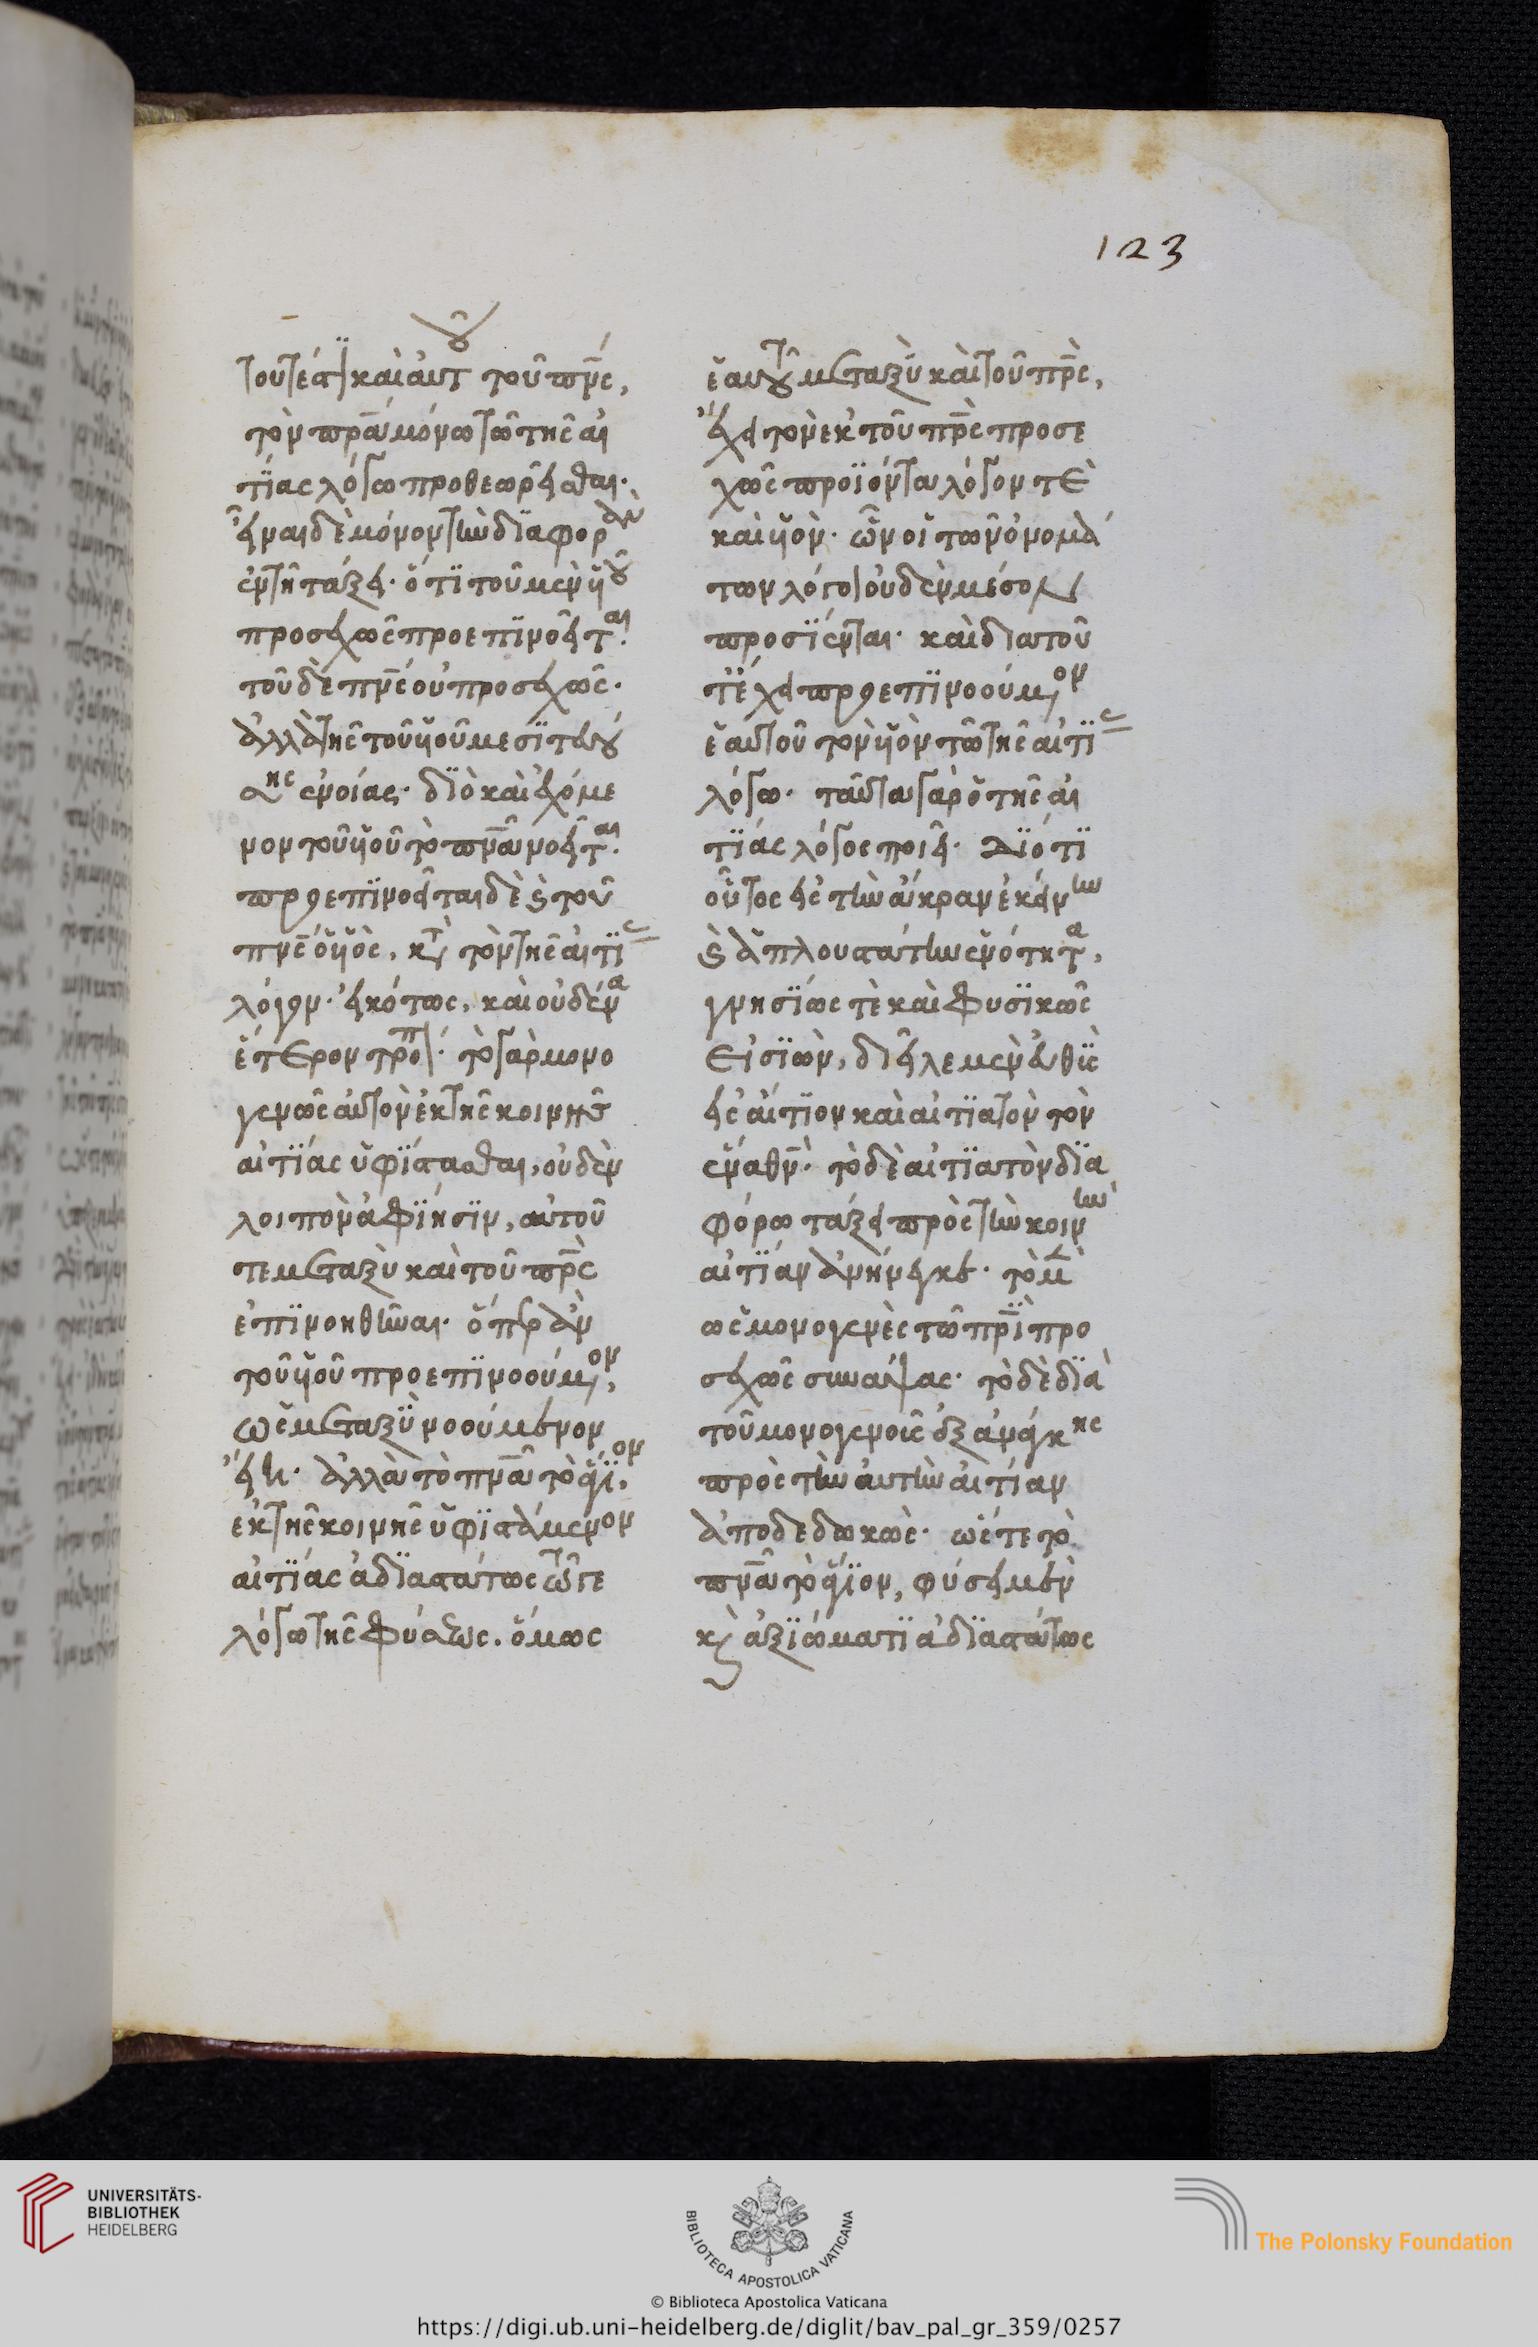 123
τουτέστι καὶ αὐτοῦ τοῦ πρ̅ς,
τὸν πρ̅α μόνω τῶ τῆς αἰ
τίας λόγω προθεωρεῖσθαι·
εἶναι δὲ μόνον τὴν διαφορὰν
ἐν τῆ τάξει· ὅτι τοῦ μὲν υἱοῦ
προσεχῶς προεπινοεῖται·
τοῦ δὲ πν̅ς οὐ προσεχῶς·
ἀλλὰ τῆς τοῦ υἱοῦ μεσιτευού
σης ἐννοίας· διὸ καὶ ἐχόμε
νον τοῦ υἱοῦ τὸ πν̅α νοεῖται·
προεπινοεῖται δὲ καὶ τοῦ
πν̅ς ὁ υἱὸς, κατὰ τὸν τῆς αἰτίας
λόγον· εἰκότως, καὶ οὐδένα
ἕτερον τρόπον· τὸ γὰρ μονο
γενῶς αὐτὸν ἐκ τῆς κοινῆς
αἰτίας ὑφίστασθαι, οὐδὲν
λοιπὸν ἀφίησιν, αὐτοῦ
τε μεταξὺ καὶ τοῦ πρ̅ς
ἐπινοηθῆναι· ὅπερ ἂν
τοῦ υἱοῦ προεπινοούμενον,
ὡς μεταξὺ νοούμενον
εἴη· ἀλλὰ τὸ πν̅α τὸ ἅγιον,
ἐκ τῆς κοινῆς ὑφιστάμενον
αἰτίας ἀδιαστάτως τῶ τε
λόγω τῆς φύσεως. ὅμως
ἑαυτοῦ μεταξὺ καὶ τοῦ πρ̅ς,
ἔχει τὸν ἐκ τοῦ πρ̅ς προσε
χῶς προϊόντα λόγον τὲ
καὶ υἱὸν· ὧν οἱ τῶν ὀνομά
των λόγοι οὐδὲν μέσον
προσίενται· καὶ διατοῦ
τ' ἔχει προεπινοούμενον
ἑαυτοῦ τὸν υἱὸν τῶ τῆς αἰτίας
λόγω· ταῦτα γὰρ ὁ τῆς αἰ
τίας λόγος ποιεῖ· Διότι
οὗτος εἰς τὴν ἄκραν ἐκείνην
καὶ ἁπλουστάτην ἑνότητα,
γνησίως τὲ καὶ φυσικῶς
εἰσιὼν, διεῖλε μὲν εὐθὺς
εἰς αἴτιον καὶ αἰτιατὸν τὸν
ἕνα θν̅· τὸ δὲ αἰτιατὸν δια
φόρω τάξει πρὸς τὴν κοινὴν
αἰτίαν ἀνήνεγκε· τὸ μὲν
ὡς μονογενὲς τῶ πρ̅ι προ
σεχῶς συνάψας· τὸ δὲ διὰ
τοῦ μονογενοῦς ἐξ ἀνάγκης
πρὸς τὴν αὐτὴν αἰτίαν
ἀποδεδωκὼς· ὥστε τὸ
πν̅α τὸ ἅγιον, φύσει μὲν
καὶ ἀξιώματι ἀδιαστάτως
UNIVERSITÄTS-
BIBLIOTHEK
HEIDELBERG
BIBLIOTECA APOSTOLICA VATICANA
The Polonsky Foundation
© Biblioteca Apostolica Vaticana
https://digi.ub.uni-heidelberg.de/diglit/bav_pal_gr_359/0257